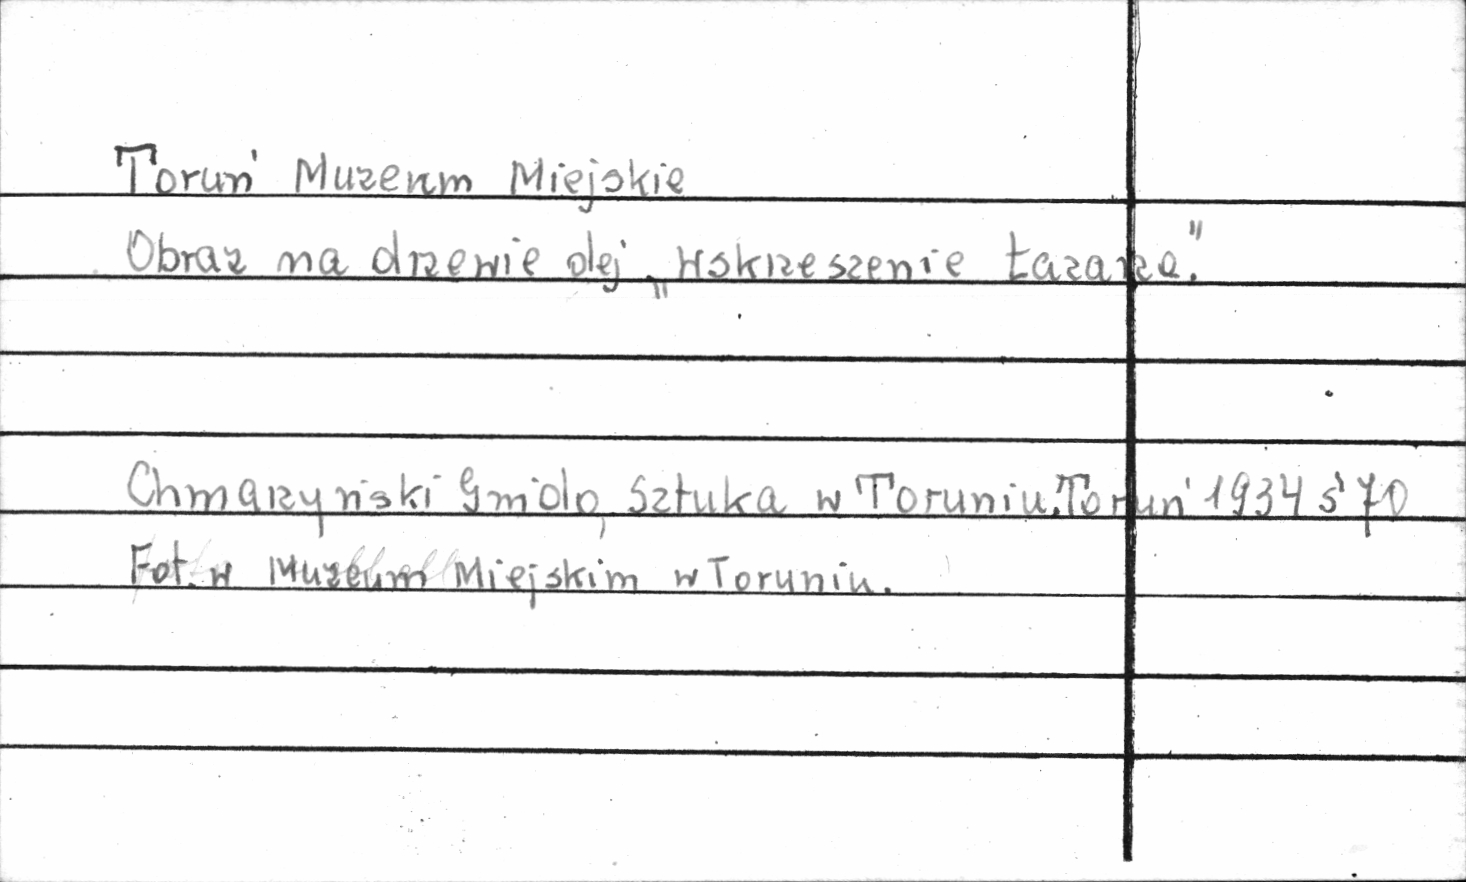 Toruń Muzeum Miejskie
Obraz na drzewie olej „wskrzeszenie Łazarza."
Chmarzyński Gwido, Sztuka w Toruniu. Toruń 1934 s 70
Fot. w Muzeum Miejskim w Toruniu.